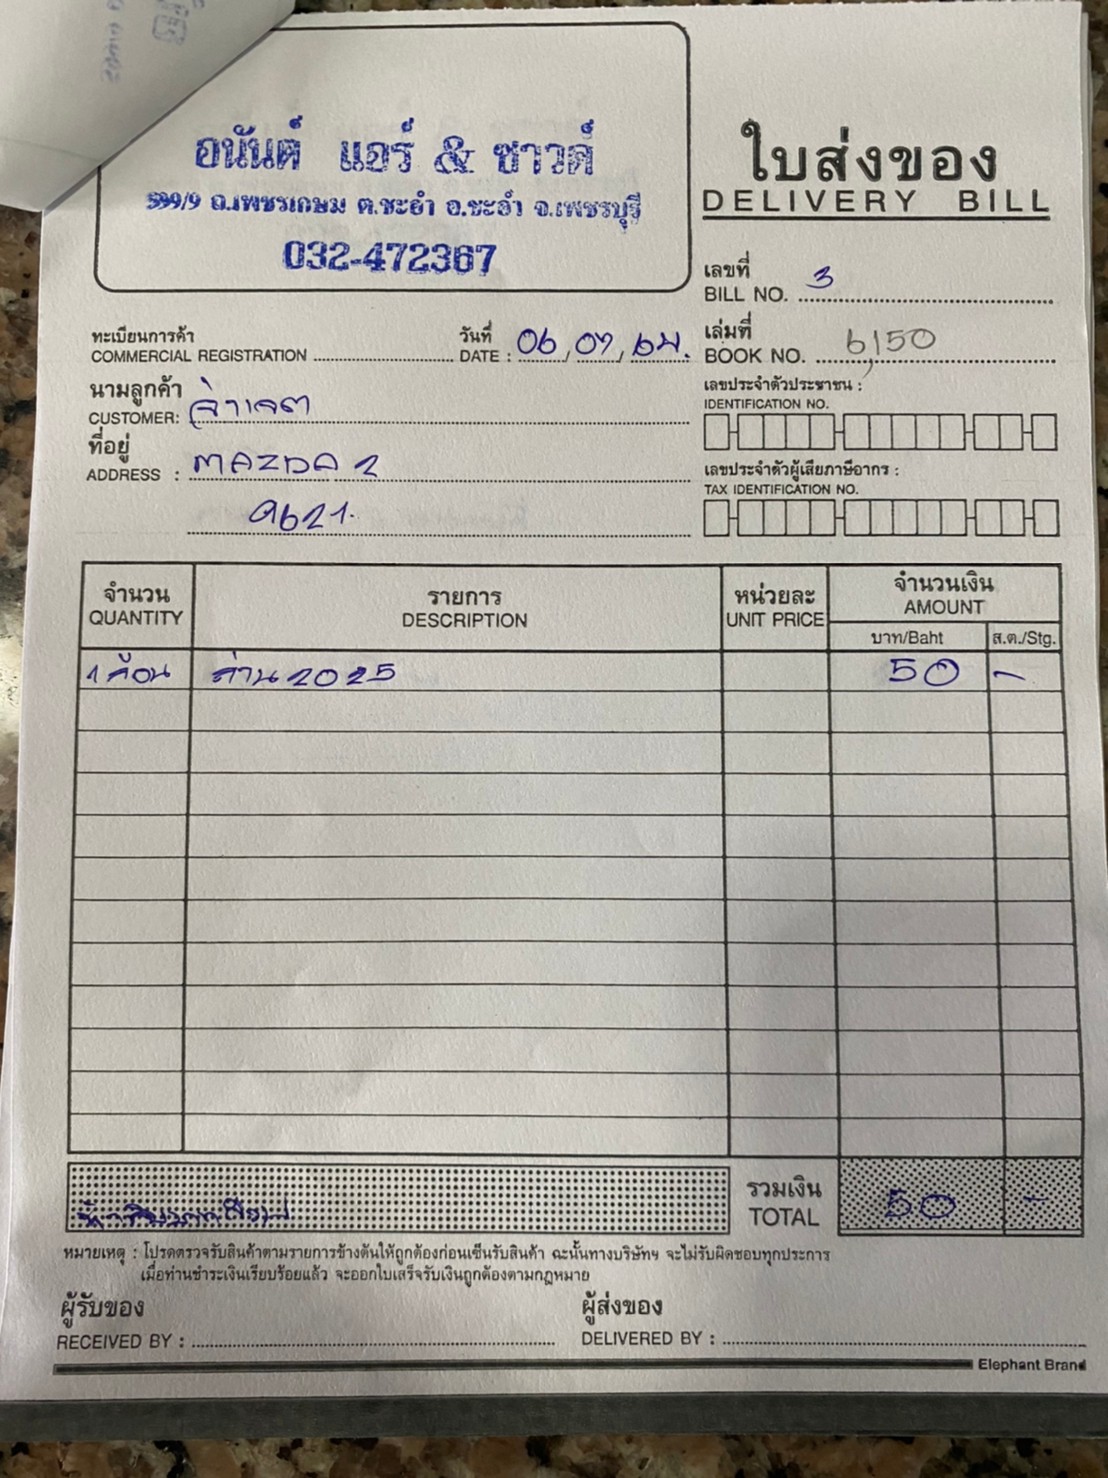 อนันต์ แอร์ & ซาวด์
599/9 ถ.เพชรเกษม ต.ชะอำ อ.ชะอำ จ.เพชรบุรี
032-472367
ใบส่งของ
DELIVERY BILL
เลขที่
BILL NO. 3
ทะเบียนการค้า
COMMERCIAL REGISTRATION
วันที่
DATE : 06 / 07 / 64.
เล่มที่
BOOK NO. 6,150
นามลูกค้า
CUSTOMER: จ่าเจต
เลขประจำตัวประชาชน :
IDENTIFICATION NO.
ที่อยู่
ADDRESS : MAZDA 2
9621.
เลขประจำตัวผู้เสียภาษีอากร :
TAX IDENTIFICATION NO.
จำนวน รายการ หน่วยละ จำนวนเงิน
QUANTITY DESCRIPTION UNIT PRICE AMOUNT
บาท/Baht ส.ต./Stg.
1 ก้อน ถ่าน 2025 50 -
รวมเงิน
TOTAL 50 -
หมายเหตุ : โปรดตรวจรับสินค้าตามรายการข้างต้นให้ถูกต้องก่อนเซ็นรับสินค้า ฉะนั้นทางบริษัทฯ จะไม่รับผิดชอบทุกประการ
เมื่อท่านชำระเงินเรียบร้อยแล้ว จะออกใบเสร็จรับเงินถูกต้องตามกฎหมาย
ผู้รับของ ผู้ส่งของ
RECEIVED BY : DELIVERED BY :
Elephant Brand